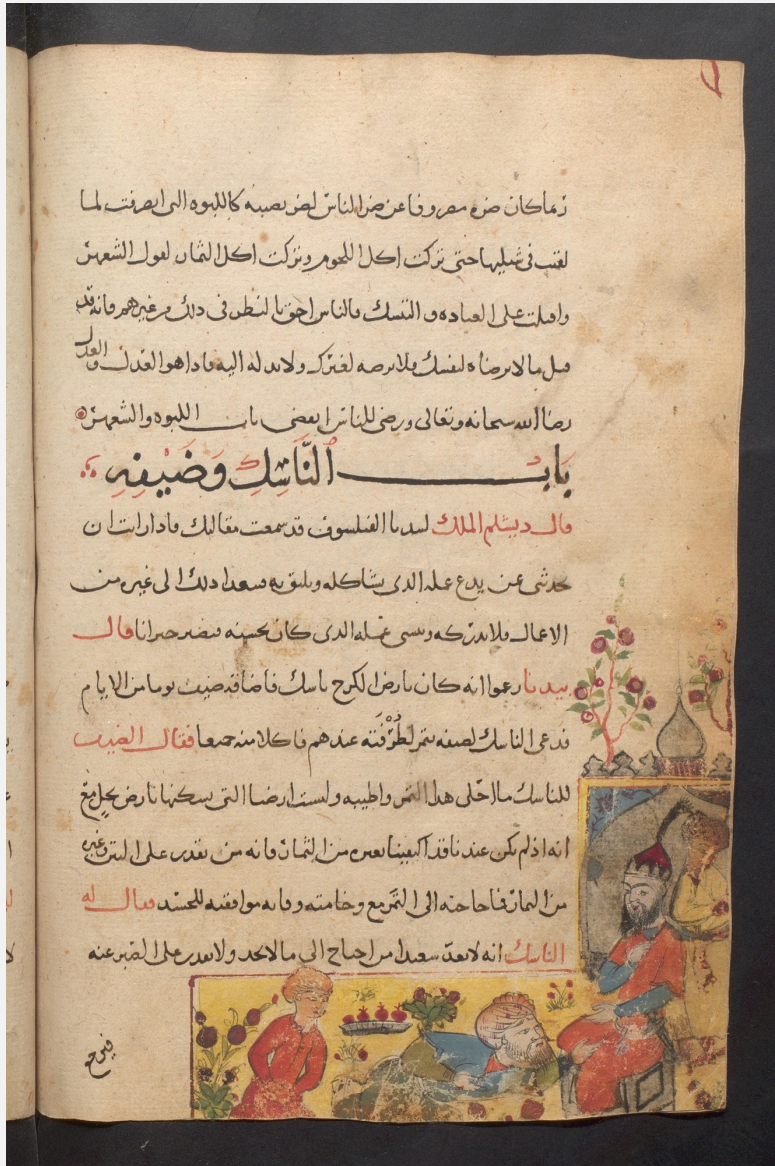 ربما كان ضره مصروفا عن ضر الناس لضر يصيبه كاللبوه التى انصرفت لما
لقيت فى شبليها حتى تركت اكل اللحوم وتركت اكل الثمار لقول الشعهر
واقبلت على العباده و التنسك والناس احق بالنظر فى ذلك من غيرهم فانه قد
قيل ما لا ترضاه لنفسك فلا ترضه لغيرك ولا تبدله اليه فاذا هو العدل والعدل
رضا الله سبحانه وتعالى ورضى للناس انقضى باب اللبوه والشعهر
باب الناسك وضيفه
قال ديشلم الملك لبيدبا الفيلسوف قد سمعت مقالتك فاذا رايت ان
تحدثنى عن يدع عمله الذى يشاكله ويليق به ويتعدا ذلك الى غيره من
الاعمال فلا يدركه وينسى عمله الذى كان يحسنه فيصير حيرانا قال
بيدبا زعموا انه كان بارض الكرخ ناسك فاضافه ضيف يوما من الايام
فدعى الناسك لضيفه بتمر لطرفته عندهم فاكلا منه جميعا فقال الضيف
للناسك ما احلى هذا التمر واطيبه وليست ارضنا التى نسكنها بارض نخل مع
انه اذ لم يكن عندنا قد اكتفينا بغيره من الثمار فانه من يقدر على التين وغيره
من الثمار فما حاجته الى التمر مع وخامته وقله موافقته للجسد فقال له
الناسك انه لا يعد سعيدا من احتاج الى ما لا يجد ولا يقدر على الصبر عنه